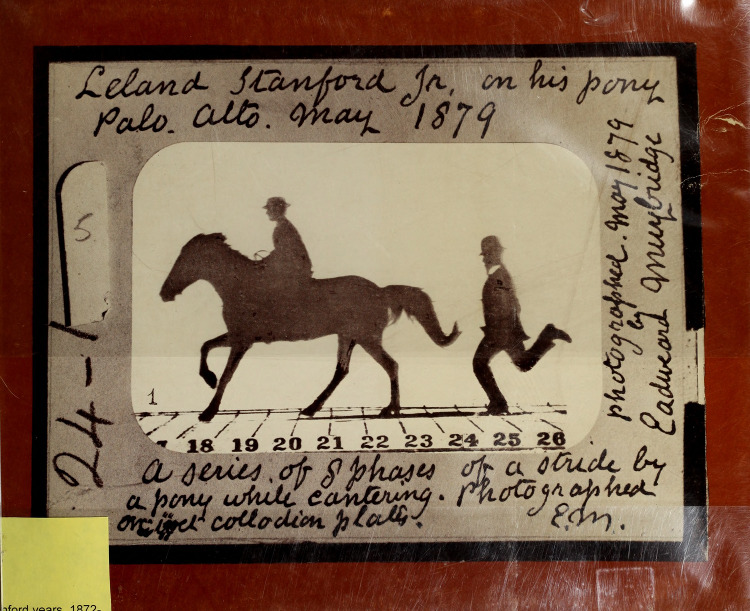 Leland Stanford Jr. on his pony
Palo. Alto. May 1879
photographed. May 1879
by
Eadweard Muybridge
5
24-1
1
18 19 20 21 22 23 24 25 26
A series. of 8 phases of a stride by
a pony while cantering. Photographed
on wet collodion plates.
E.M.
nford years, 1872-